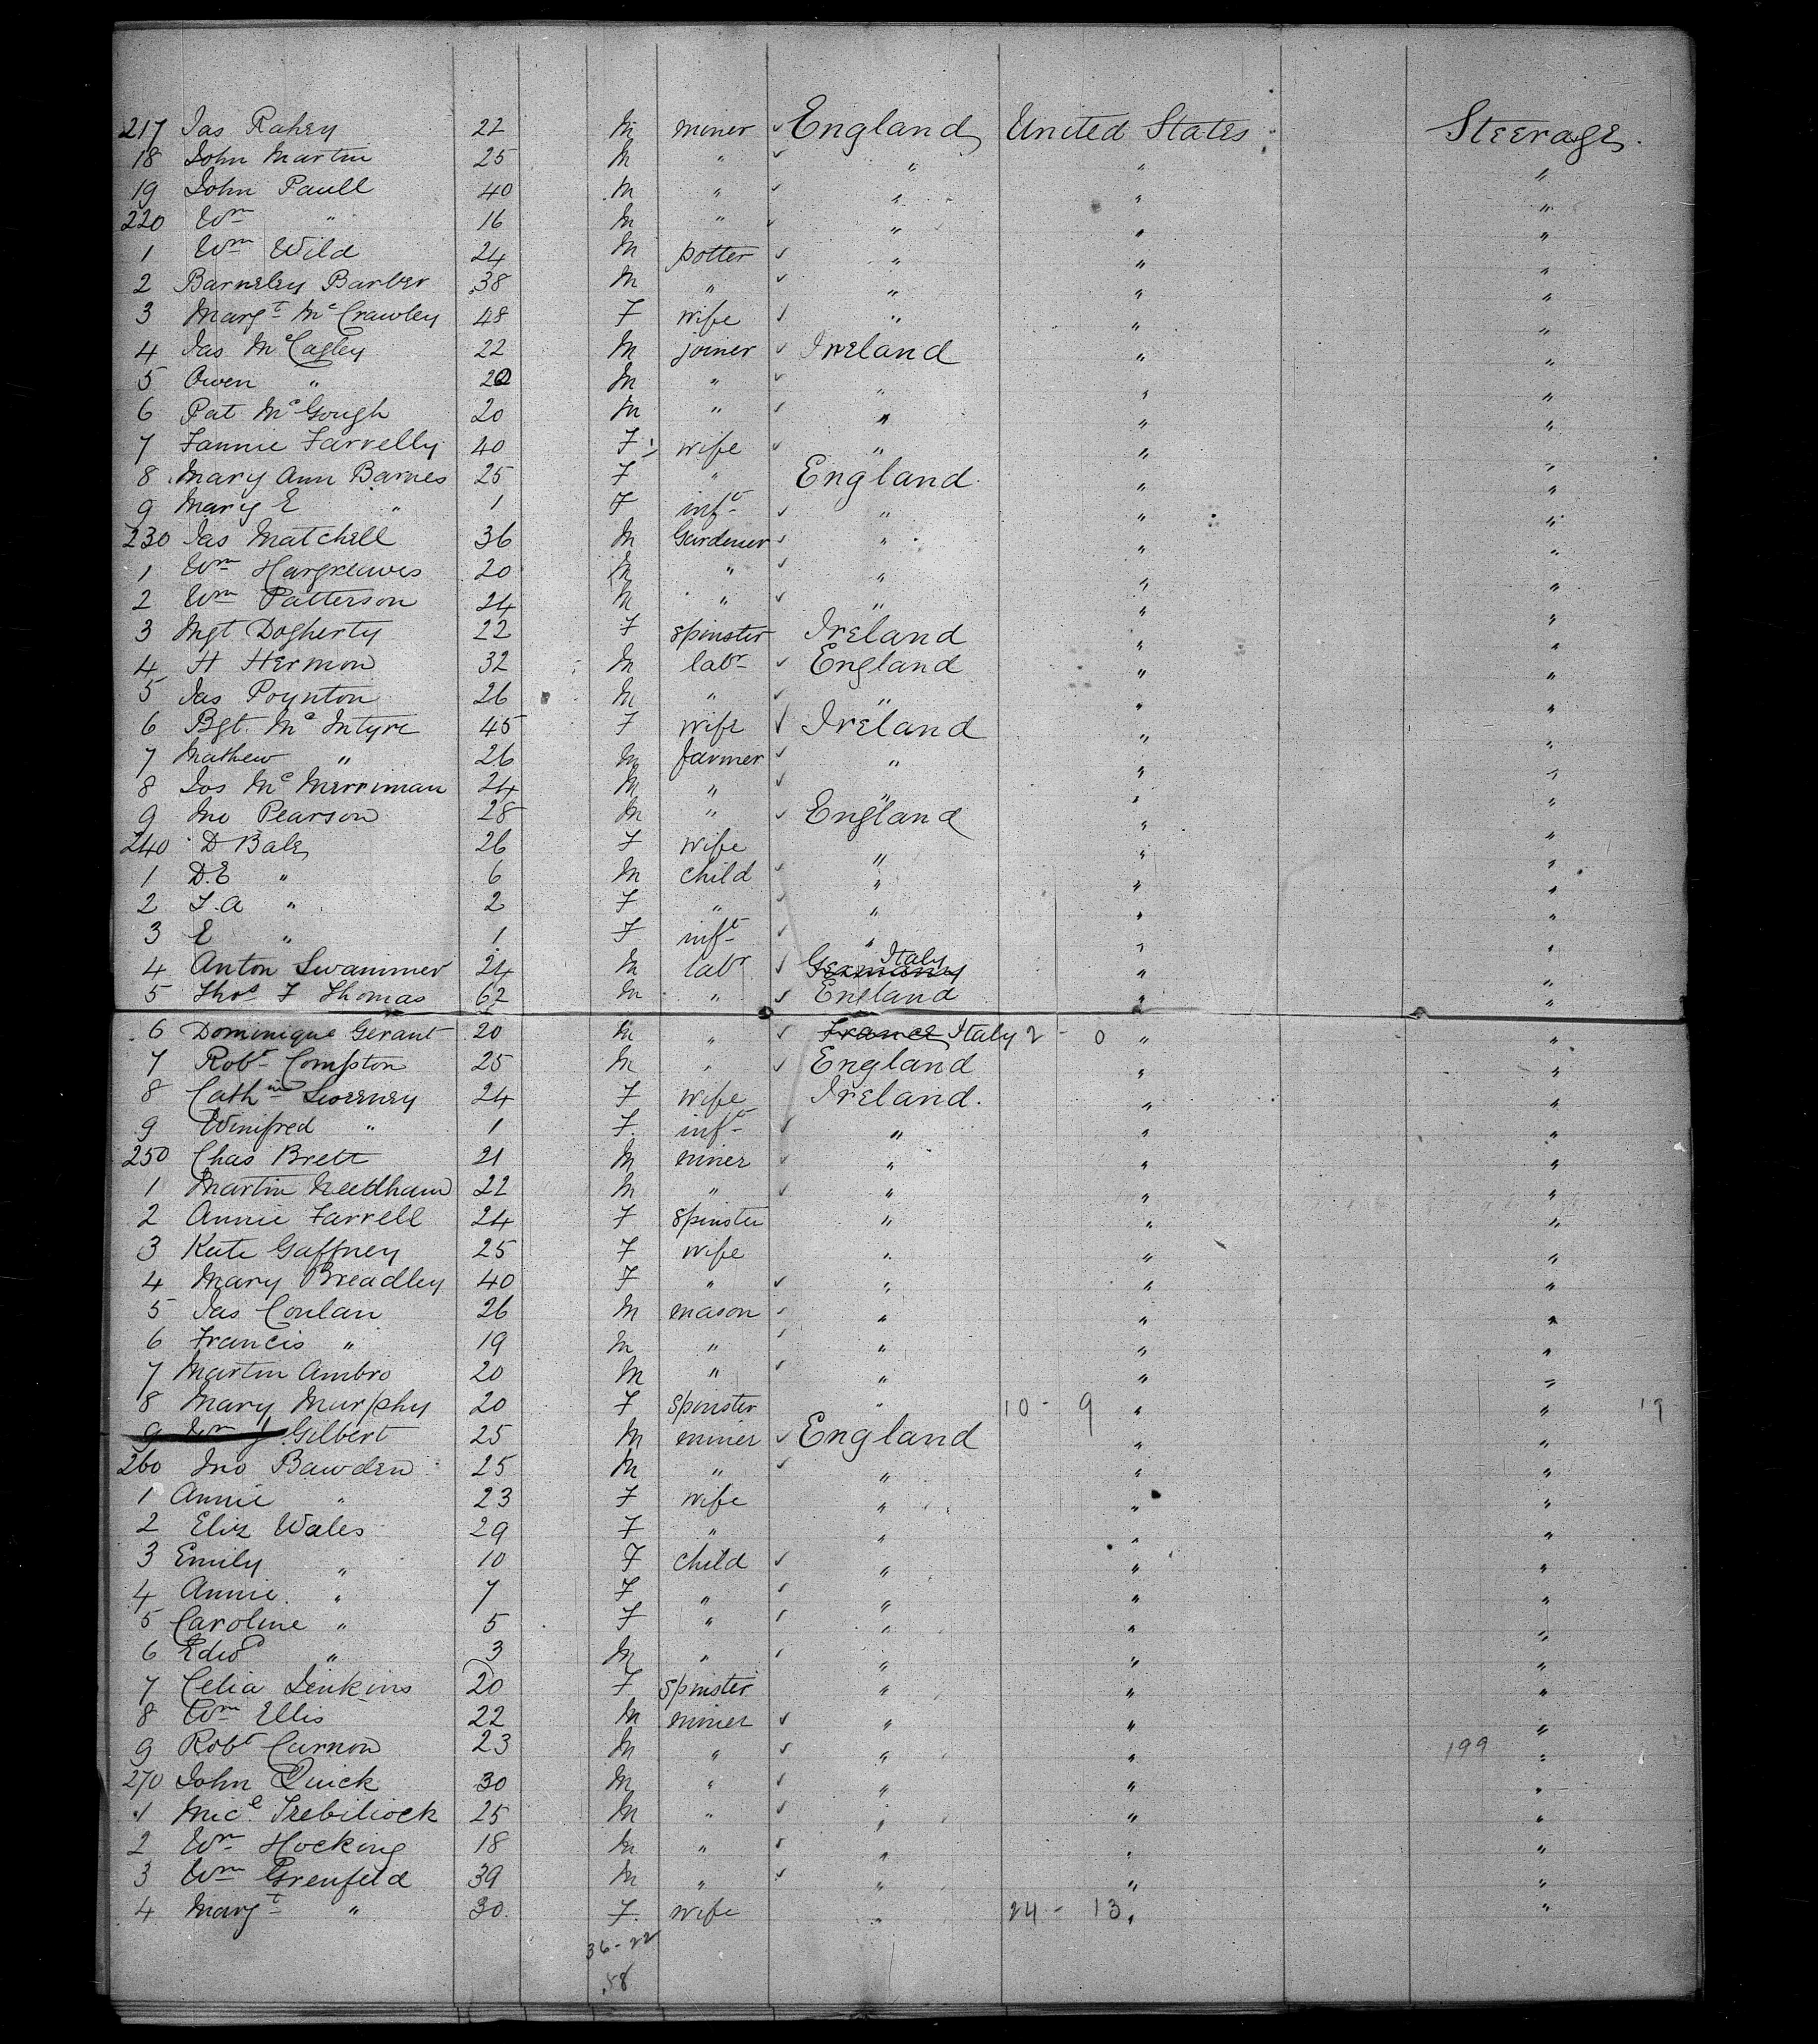 217 Jas Rahey 22 M miner ✓ England United States Steerage.
18 John Martin 25 M " ✓ " " "
19 John Paull 40 M " ✓ " " "
220 Wm " 16 M " ✓ " " "
1 Wm Wild 24 M potter ✓ " " "
2 Barneley Barber 38 M " ✓ " " "
3 Margt McCrawley 48 F wife ✓ " " "
4 Jas McCagley 22 M joiner ✓ Ireland " "
5 Owen " 20 M " ✓ " " "
6 Pat McGough 20 M " ✓ " " "
7 Fannie Farrelly 40 F wife ✓ " " "
8 Mary Ann Barnes 25 F " England " "
9 Mary E " 1 F inft ✓ " " "
230 Jas Matchell 36 M Gardener ✓ " " "
1 Wm Hargreaves 20 M " ✓ " " "
2 Wm Patterson 24 M " ✓ " " "
3 Mgt Dogherty 22 F spinster Ireland " "
4 H Hermon 32 M labr ✓ England " "
5 Jas Poynton 26 M " ✓ " " "
6 Bgt McIntyre 45 F wife ✓ Ireland " "
7 Mathew " 26 M farmer ✓ " " "
8 Jos McMerriman 24 M " ✓ " " "
9 Jno Pearson 28 M " ✓ England " "
240 D Bale 26 F wife " " "
1 D.E " 6 M child ✓ " " "
2 F.A " 2 F " ✓ " " "
3 E " 1 F inft ✓ " " "
4 Anton Swammer 24 M labr ✓ Germany Italy " "
5 Thos F Thomas 62 M " ✓ England " "
6 Dominique Gerant 20 M " ✓ France Italy 2 - 0 " "
7 Robt Compton 25 M " ✓ England " "
8 Cathne Sweeney 24 F wife Ireland. " "
9 Winifred " 1 F. inft ✓ " " "
250 Chas Brett 21 M miner ✓ " " "
1 Martin Needham 22 M " ✓ " " "
2 Annie Farrell 24 F spinster " " "
3 Kate Gaffney 25 F wife " " "
4 Mary Breadley 40 F " ✓ " " "
5 Jas Conlan 26 M mason ✓ " " "
6 Francis " 19 M " ✓ " " "
7 Martin Ambro 20 M " ✓ " " "
8 Mary Murphy 20 F spinster " 10 - 9 " " 19
9 Wm J Gilbert 25 M miner ✓ England " "
260 Jno Bawden 25 M " ✓ " " "
1 Annie " 23 F wife " " "
2 Eliz Wales 29 F " " " "
3 Emily " 10 F child ✓ " " "
4 Annie " 7 F " ✓ " " "
5 Caroline " 5 F " ✓ " " "
6 Edwd " 3 M " ✓ " " "
7 Celia Jenkins 20 F spinster " " "
8 Wm Ellis 22 M miner ✓ " " "
9 Robt Curnow 23 M " ✓ " " 199 "
270 John Quick 30 M " ✓ " " "
1 Micl Trebilcock 25 M " ✓ " " "
2 Wm Hocking 18 M " ✓ " " "
3 Wm Grenfeld 39 M " ✓ " " "
4 Margt " 30. F. wife " 24 - 13 " "
36 - 22
58